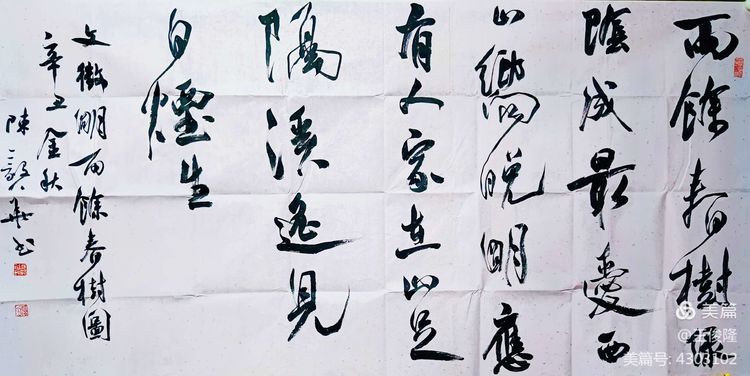 雨餘春樹綠
陰成最愛西
山嚮晚明應
有人家在山足
隔溪遙見
白煙生
文徵明雨餘春樹圖
辛丑金秋
陳
美篇
@王俊隆
美篇号: 4303102